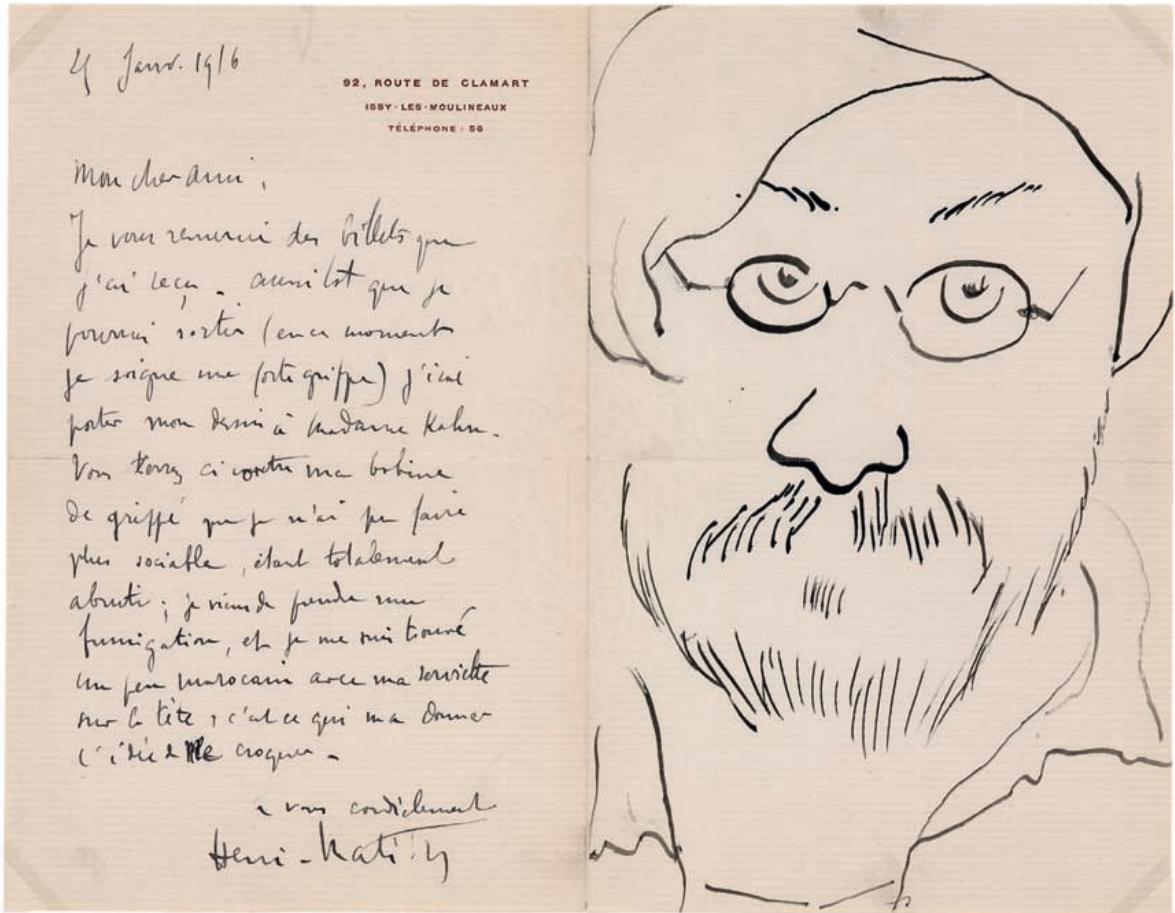 Janv. 1916
92, ROUTE DE CLAMART
ISSY-LES-MOULINEAUX
TÉLÉPHONE : 56
Mon cher ami,
Je vous remercie des billets que
j'ai reçu. aussitot que je
pourrai sortir (en ce moment
je soigne une forte grippe) j'irai
porter mon dessin à Madame Kahn.
Vous verrez ci contre ma bobine
de grippé que je n'ai pu faire
plus sociable, étant totalement
abruti ; je viens de prendre une
fumigation, et je me suis trouvé
un peu marocain avec ma serviette
sur la tête ; c'est ce qui m'a donner
l'idée de me croquer -
a vous cordialement
Henri-Matisse